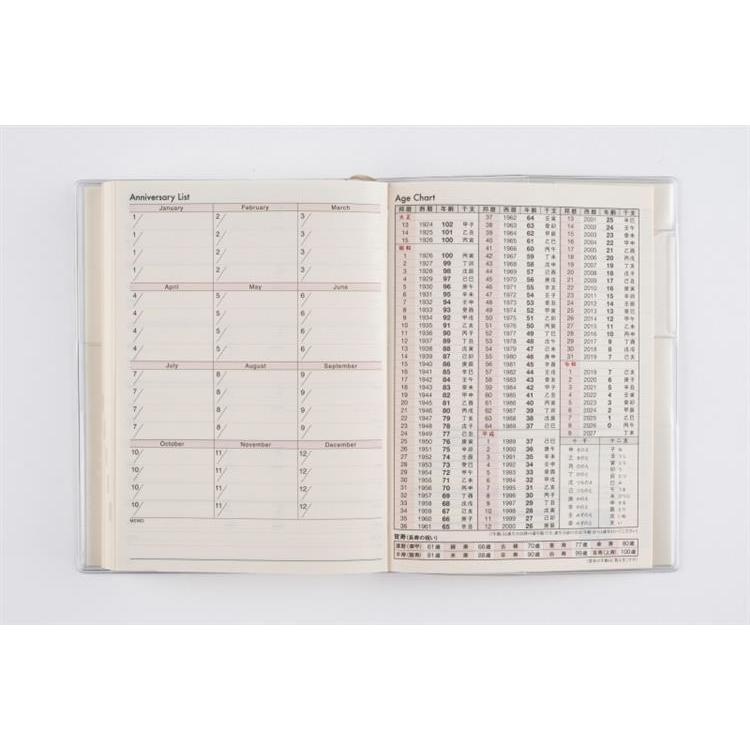 Anniversary List
January February March
1/ 2/ 3/
1/ 2/ 3/
1/ 2/ 3/
1/ 2/ 3/
April May June
4/ 5/ 6/
4/ 5/ 6/
4/ 5/ 6/
4/ 5/ 6/
July August September
7/ 8/ 9/
7/ 8/ 9/
7/ 8/ 9/
7/ 8/ 9/
October November December
10/ 11/ 12/
10/ 11/ 12/
10/ 11/ 12/
10/ 11/ 12/
MEMO
Age Chart
邦暦 西暦 年齢 干支 邦暦 西暦 年齢 干支 邦暦 西暦 年齢 干支
大正 37 1962 64 壬寅 13 2001 25 辛巳
13 1924 102 甲子 38 1963 63 癸卯 14 2002 24 壬午
14 1925 101 乙丑 39 1964 62 甲辰 15 2003 23 癸未
15 1926 100 丙寅 40 1965 61 乙巳 16 2004 22 甲申
昭和 41 1966 60 丙午 17 2005 21 乙酉
1 1926 100 丙寅 42 1967 59 丁未 18 2006 20 丙戌
2 1927 99 丁卯 43 1968 58 戊申 19 2007 19 丁亥
3 1928 98 戊辰 44 1969 57 己酉 20 2008 18 戊子
4 1929 97 己巳 45 1970 56 庚戌 21 2009 17 己丑
5 1930 96 庚午 46 1971 55 辛亥 22 2010 16 庚寅
6 1931 95 辛未 47 1972 54 壬子 23 2011 15 辛卯
7 1932 94 壬申 48 1973 53 癸丑 24 2012 14 壬辰
8 1933 93 癸酉 49 1974 52 甲寅 25 2013 13 癸巳
9 1934 92 甲戌 50 1975 51 乙卯 26 2014 12 甲午
10 1935 91 乙亥 51 1976 50 丙辰 27 2015 11 乙未
11 1936 90 丙子 52 1977 49 丁巳 28 2016 10 丙申
12 1937 89 丁丑 53 1978 48 戊午 29 2017 9 丁酉
13 1938 88 戊寅 54 1979 47 己未 30 2018 8 戊戌
14 1939 87 己卯 55 1980 46 庚申 31 2019 7 己亥
15 1940 86 庚辰 56 1981 45 辛酉 令和
16 1941 85 辛巳 57 1982 44 壬戌 1 2019 7 己亥
17 1942 84 壬午 58 1983 43 癸亥 2 2020 6 庚子
18 1943 83 癸未 59 1984 42 甲子 3 2021 5 辛丑
19 1944 82 甲申 60 1985 41 乙丑 4 2022 4 壬寅
20 1945 81 乙酉 61 1986 40 丙寅 5 2023 3 癸卯
21 1946 80 丙戌 62 1987 39 丁卯 6 2024 2 甲辰
22 1947 79 丁亥 63 1988 38 戊辰 7 2025 1 乙巳
23 1948 78 戊子 64 1989 37 己巳 8 2026 0 丙午
24 1949 77 己丑 平成 9 2027 丁未
25 1950 76 庚寅 1 1989 37 己巳 十干 十二支
26 1951 75 辛卯 2 1990 36 庚午
27 1952 74 壬辰 3 1991 35 辛未
28 1953 73 癸巳 4 1992 34 壬申
29 1954 72 甲午 5 1993 33 癸酉
30 1955 71 乙未 6 1994 32 甲戌
31 1956 70 丙申 7 1995 31 乙亥
32 1957 69 丁酉 8 1996 30 丙子
33 1958 68 戊戌 9 1997 29 丁丑
34 1959 67 己亥 10 1998 28 戊寅
35 1960 66 庚子 11 1999 27 己卯
36 1961 65 辛丑 12 2000 26 庚辰
賀寿(長寿の祝い)
還暦(華甲) 61歳 緑寿 66歳 古稀 70歳 喜寿 77歳 傘寿 80歳
半寿(盤寿) 81歳 米寿 88歳 卒寿 90歳 白寿 99歳 百寿(上寿) 100歳